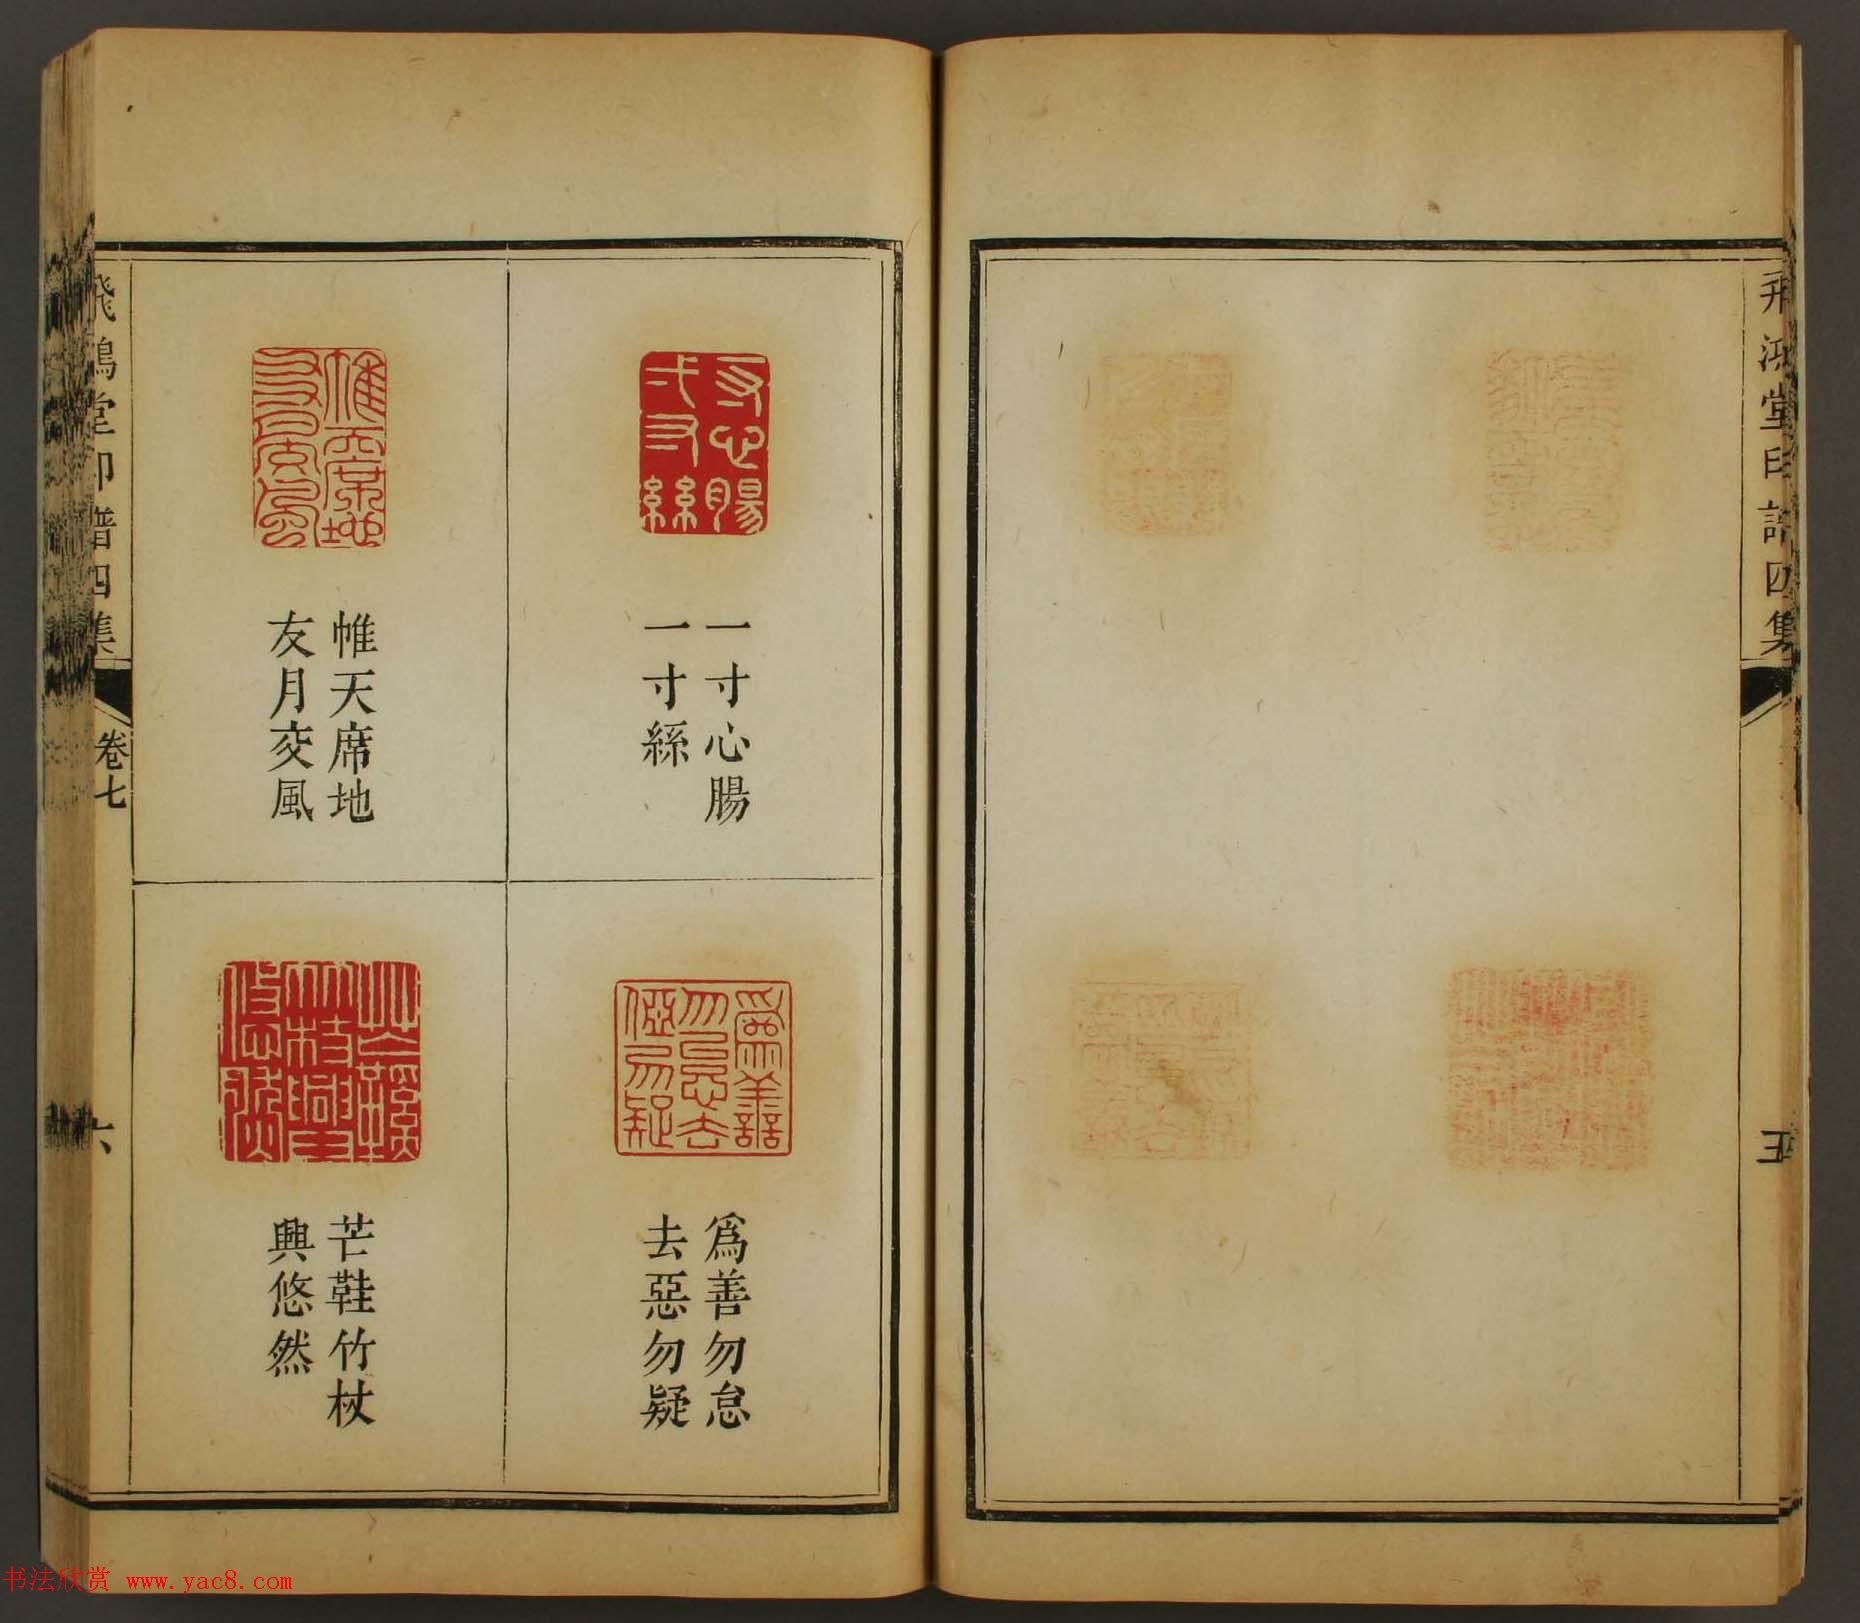 飛鴻堂印譜四集
五
一寸心腸
一寸絲
帷天席地
友月交風
爲善勿怠
去惡勿疑
芒鞋竹杖
興悠然
飛鴻堂印譜四集
卷七
六
书法欣赏 www.yac8.com